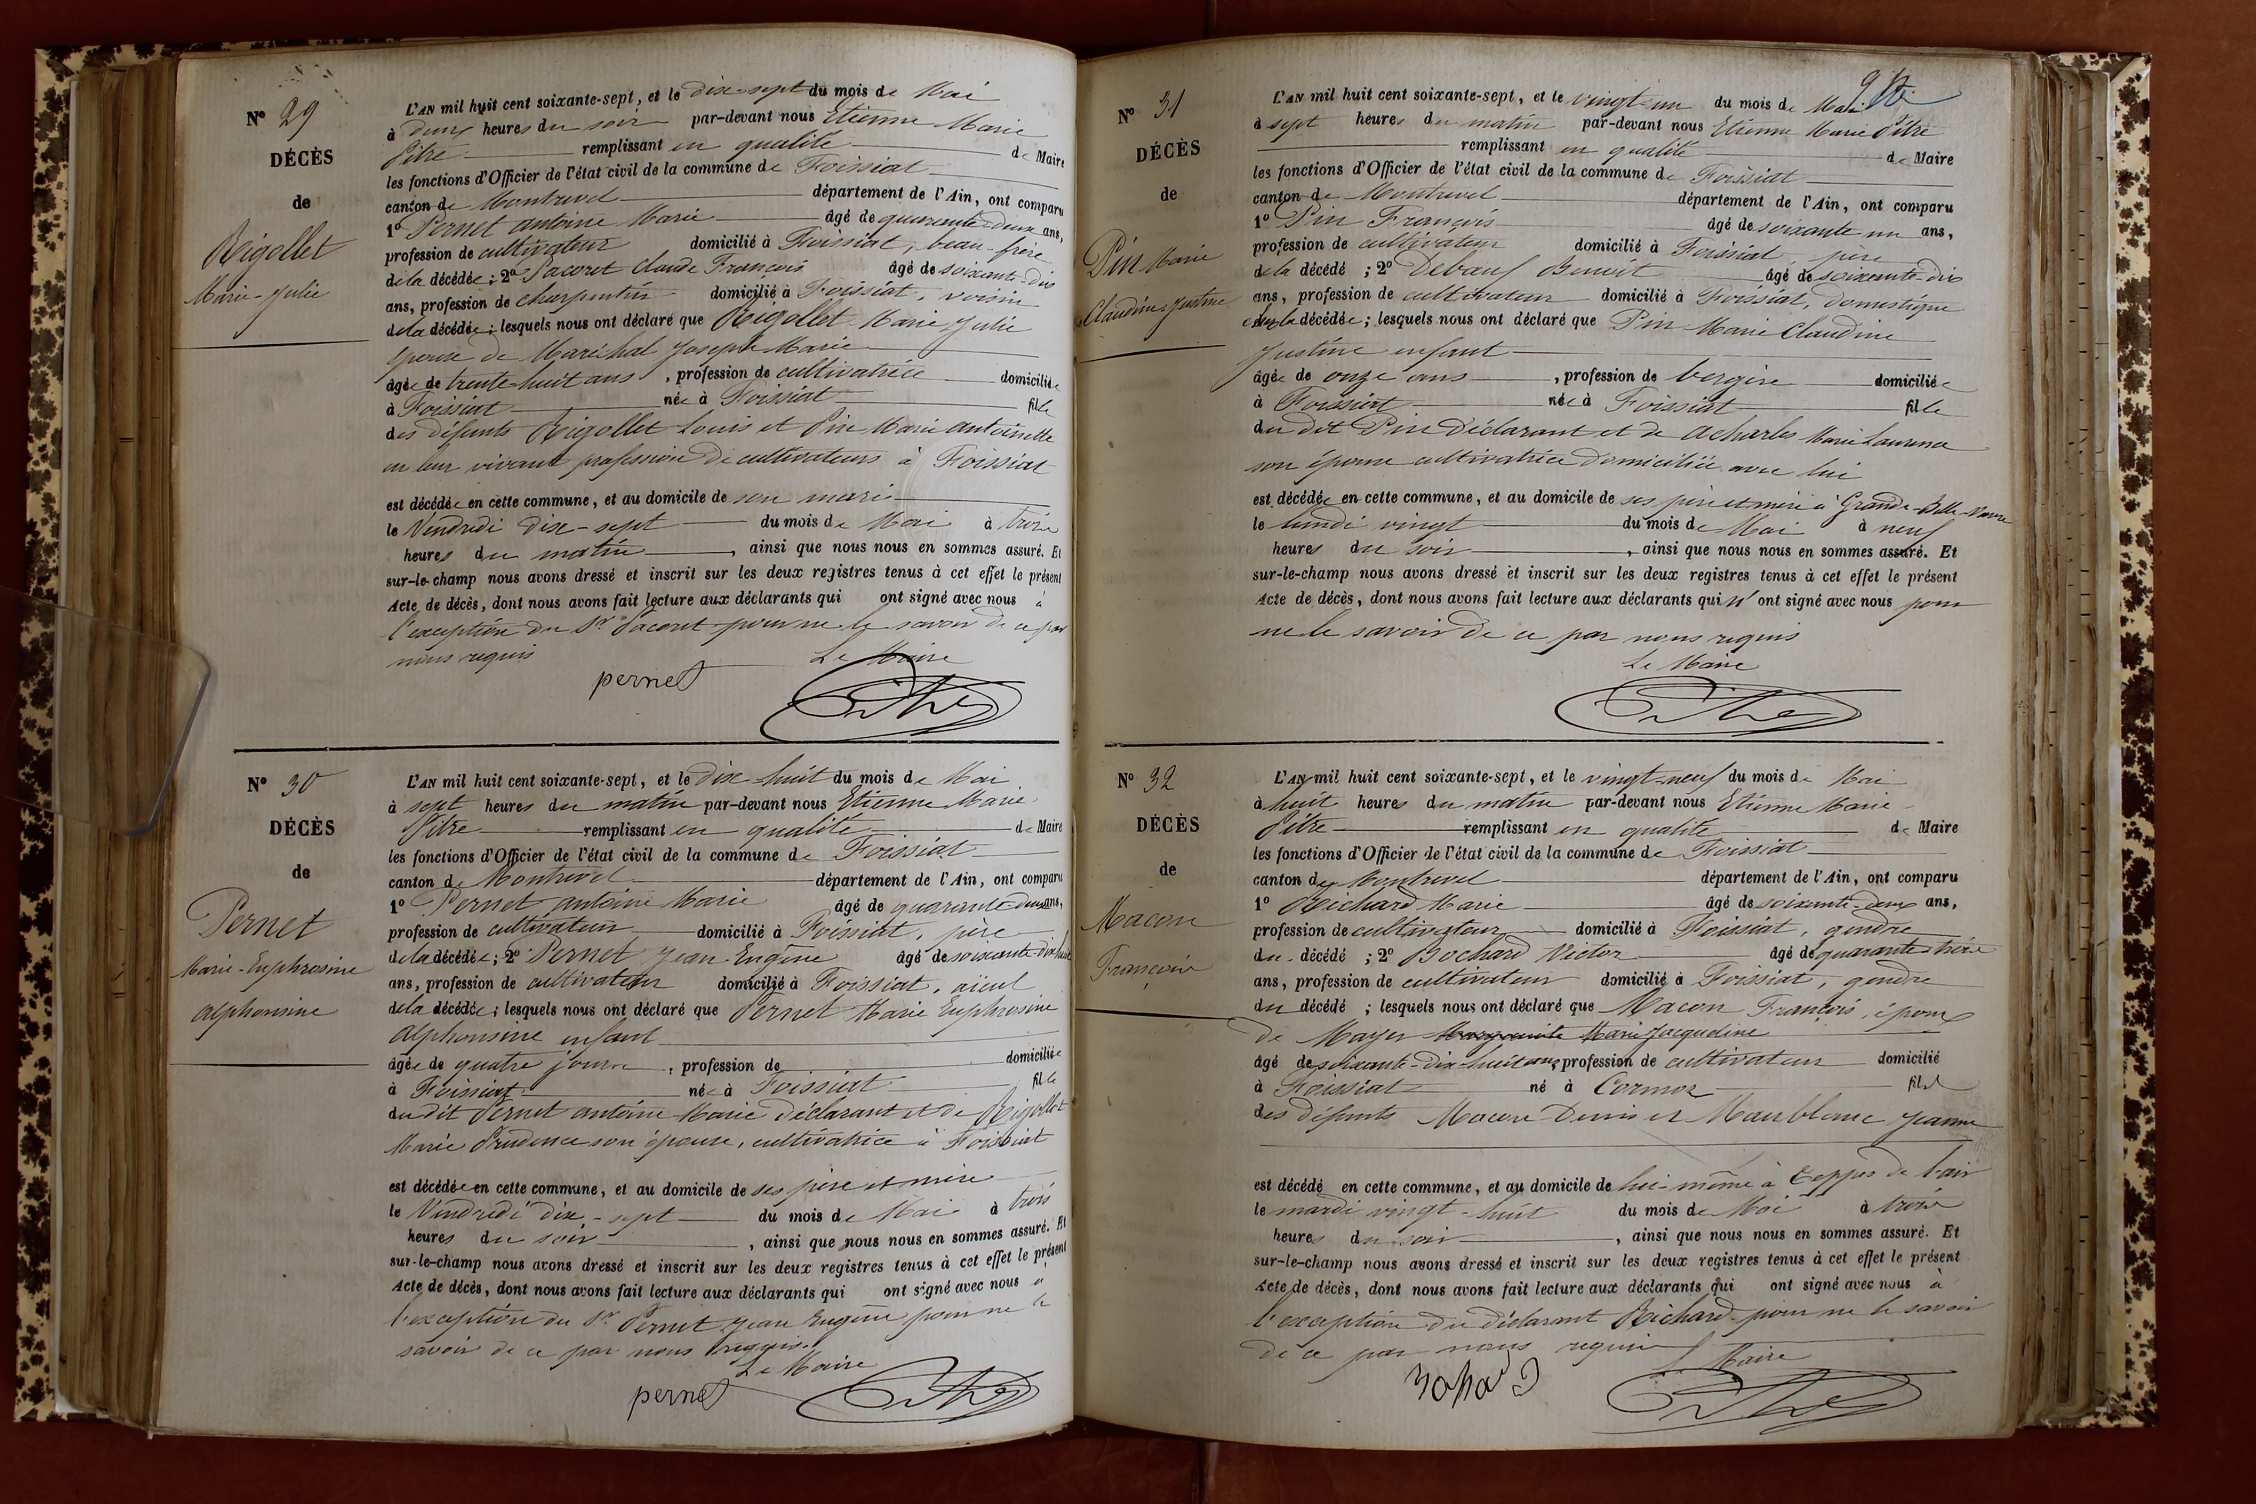 Nº 29
DÉCÈS
de
Rigollet
Marie-Julie
L'AN mil huit cent soixante-sept, et le dix-sept du mois de Mai
à deux heures du soir par-devant nous Etienne Marie
Pitre remplissant en qualité de Maire
les fonctions d'Officier de l'état civil de la commune de Foissiat
canton de Montrevel département de l'Ain, ont comparu
1º Pernet antoine Marie âgé de quarante-deux ans,
profession de cultivateur domicilié à Foissiat, beau-frère
de la décédée; 2º Pacoret Claude François âgé de soixante-dix
ans, profession de charpentier domicilié à Foissiat, voisin
de la décédée; lesquels nous ont déclaré que Rigollet Marie Julie
épouse de Maréchal Joseph Marie
âgée de trente-huit ans, profession de cultivatrice domiciliée
à Foissiat née à Foissiat fille
des défunts Rigollet Louis et Pin Marie antoinette
en leur vivant profession de cultivateurs à Foissiat
est décédée en cette commune, et au domicile de son mari
le Vendredi dix-sept du mois de Mai à trois
heures du matin, ainsi que nous nous en sommes assuré. Et
sur-le-champ nous avons dressé et inscrit sur les deux registres tenus à cet effet le présent
Acte de décès, dont nous avons fait lecture aux déclarants qui ont signé avec nous à
l'exception du Sr Pacoret pour ne le savoir de ce par
nous requis
Le Maire
pernet
Pitre
Nº 30
DÉCÈS
de
Pernet
Marie-Euphrosine
alphonsine
L'AN mil huit cent soixante-sept, et le dix-huit du mois de Mai
à sept heures du matin par-devant nous Etienne Marie
Pitre remplissant en qualité de Maire
les fonctions d'Officier de l'état civil de la commune de Foissiat
canton de Montrevel département de l'Ain, ont comparu
1º Pernet antoine Marie âgé de quarante-deux ans,
profession de cultivateur domicilié à Foissiat, père
de la décédée; 2º Pernet Jean-Eugène âgé de soixante-dix-huit
ans, profession de cultivateur domicilié à Foissiat, aïeul
de la décédée; lesquels nous ont déclaré que Pernet Marie Euphrosine
alphonsine enfant
âgée de quatre jours, profession de domiciliée
à Foissiat née à Foissiat fille
du dit Pernet antoine Marie déclarant et de Rigollet
Marie Prudence son épouse, cultivatrice à Foissiat
est décédée en cette commune, et au domicile de ses père et mère
le Vendredi dix-sept du mois de Mai à trois
heures du soir, ainsi que nous nous en sommes assuré. Et
sur-le-champ nous avons dressé et inscrit sur les deux registres tenus à cet effet le présent
Acte de décès, dont nous avons fait lecture aux déclarants qui ont signé avec nous à
l'exception du Sr Pernet Jean Eugène pour ne le
savoir de ce par nous requis.
Le Maire
pernet
Pitre
Nº 31
DÉCÈS
de
Pin Marie
Claudine Justine
L'AN mil huit cent soixante-sept, et le vingt-un du mois de Mai
à sept heures du matin par-devant nous Etienne Marie Pitre
remplissant en qualité de Maire
les fonctions d'Officier de l'état civil de la commune de Foissiat
canton de Montrevel département de l'Ain, ont comparu
1º Pin François âgé de soixante un ans,
profession de cultivateur domicilié à Foissiat, père
de la décédé; 2º Debauf Benoit âgé de soixante-dix
ans, profession de cultivateur domicilié à Foissiat, domestique
de la décédée; lesquels nous ont déclaré que Pin Marie Claudine
Justine enfant
âgée de onze ans, profession de bergère domiciliée
à Foissiat née à Foissiat fille
du dit Pin déclarant et de acharles Marie Laurence
son épouse cultivatrice domiciliée avec lui
est décédée en cette commune, et au domicile de ses père et mère à Grande-Belle-Vavre
le lundi vingt du mois de Mai à neuf
heures du soir, ainsi que nous nous en sommes assuré. Et
sur-le-champ nous avons dressé et inscrit sur les deux registres tenus à cet effet le présent
Acte de décès, dont nous avons fait lecture aux déclarants qui n'ont signé avec nous pour
ne le savoir de ce par nous requis
Le Maire
Pitre
Nº 32
DÉCÈS
de
Macon
François
L'AN mil huit cent soixante-sept, et le vingt-neuf du mois de Mai
à huit heures du matin par-devant nous Etienne Marie
Pitre remplissant en qualité de Maire
les fonctions d'Officier de l'état civil de la commune de Foissiat
canton de Montrevel département de l'Ain, ont comparu
1º Richard Marie âgé de soixante-deux ans,
profession de cultivateur domicilié à Foissiat, gendre
du décédé; 2º Bochard Victor âgé de quarante-trois
ans, profession de cultivateur domicilié à Foissiat, gendre
du décédé; lesquels nous ont déclaré que Macon François, époux
de Mayer Marguerite Marie Jacqueline
âgé de soixante-dix-huit ans, profession de cultivateur domicilié
à Foissiat né à Cormoz fils
des défunts Macon Denis et Maublanc Jeanne
est décédé en cette commune, et au domicile de lui-même à Teppes de bair
le mardi vingt-huit du mois de Mai à trois
heures du soir, ainsi que nous nous en sommes assuré. Et
sur-le-champ nous avons dressé et inscrit sur les deux registres tenus à cet effet le présent
Acte de décès, dont nous avons fait lecture aux déclarants qui ont signé avec nous à
l'exception du déclarant Richard pour ne le savoir
de ce par nous requis
Le Maire
Pitre